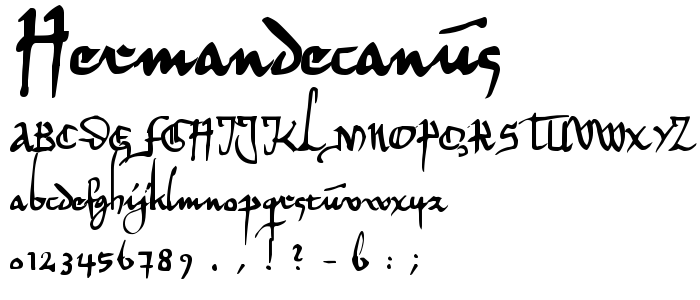 Hermandecanus
ABCDEFGHIJKLMNOPQRSTUVWXYZ
abcdefghijklmnopqrstuvwxyz
0123456789 . , ! ? - b : ;